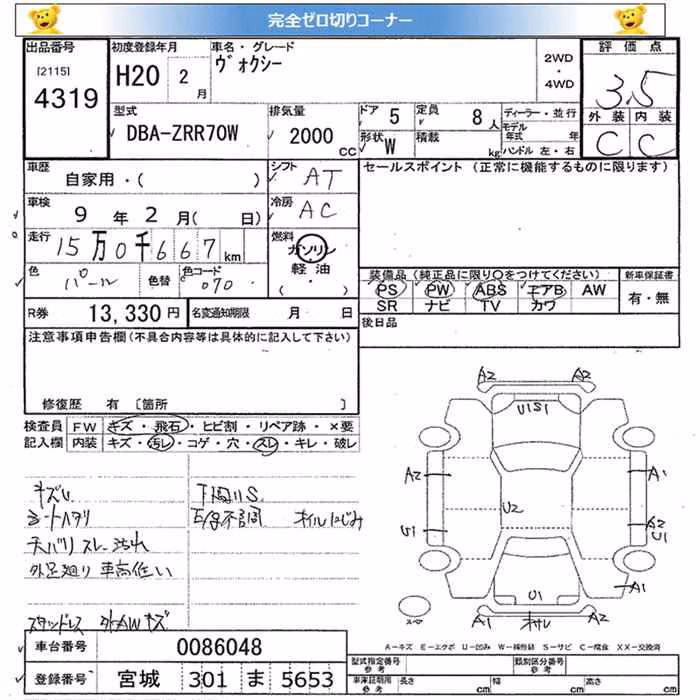 完全ゼロ切りコーナー
出品番号 初度登録年月 車名・グレード 評価点
[2115] 4319 H20 2月 ヴォクシー 2WD・4WD 3.5
型式 排気量 ドア 5 定員 8人 ディーラー・並行 外装 内装
DBA-ZRR70W 2000CC 形状 W 積載 kg モデル年式 年 C C
ハンドル 左・右
車歴 自家用・( ) シフト AT セールスポイント (正常に機能するものに限ります)
車検 9年2月( 日) 冷房 AC
走行 15万0千667km 燃料 ガソリン
軽油
( ・ )
色 パール 色替 色コード 070 装備品 (純正品に限り○をつけてください) 新車保証書
PS PW ABS エアB AW 有・無
R券 13,330円 名変通知期限 月 日 SR ナビ TV カワ
注意事項申告欄(不具合内容等は具体的に記入して下さい) 後日品
修復歴 有 [箇所 ]
検査員 FW キズ・飛石・ヒビ割・リペア跡・×要
記入欄 内装 キズ・汚レ・コゲ・穴・スレ・キレ・破レ
A2 A2
U1S1
キズU 下回りS
シートヘタリ オイルにじみ
天バリ スレ 汚れ
外足廻り 車高低い
A2 A1
U2
A2
U1
U1 A1
スタッドレス 外AWキズ
スペア A1 A2
A-キズ E-エクボ U-凹み W-補修跡 S-サビ C-腐食 XX-交換済
車台番号 0086048 型式指定番号 参考 類別区分番号 参考
登録番号 宮城 301 ま 5653 車庫証明用 参考 長さ cm 幅 cm 高さ cm